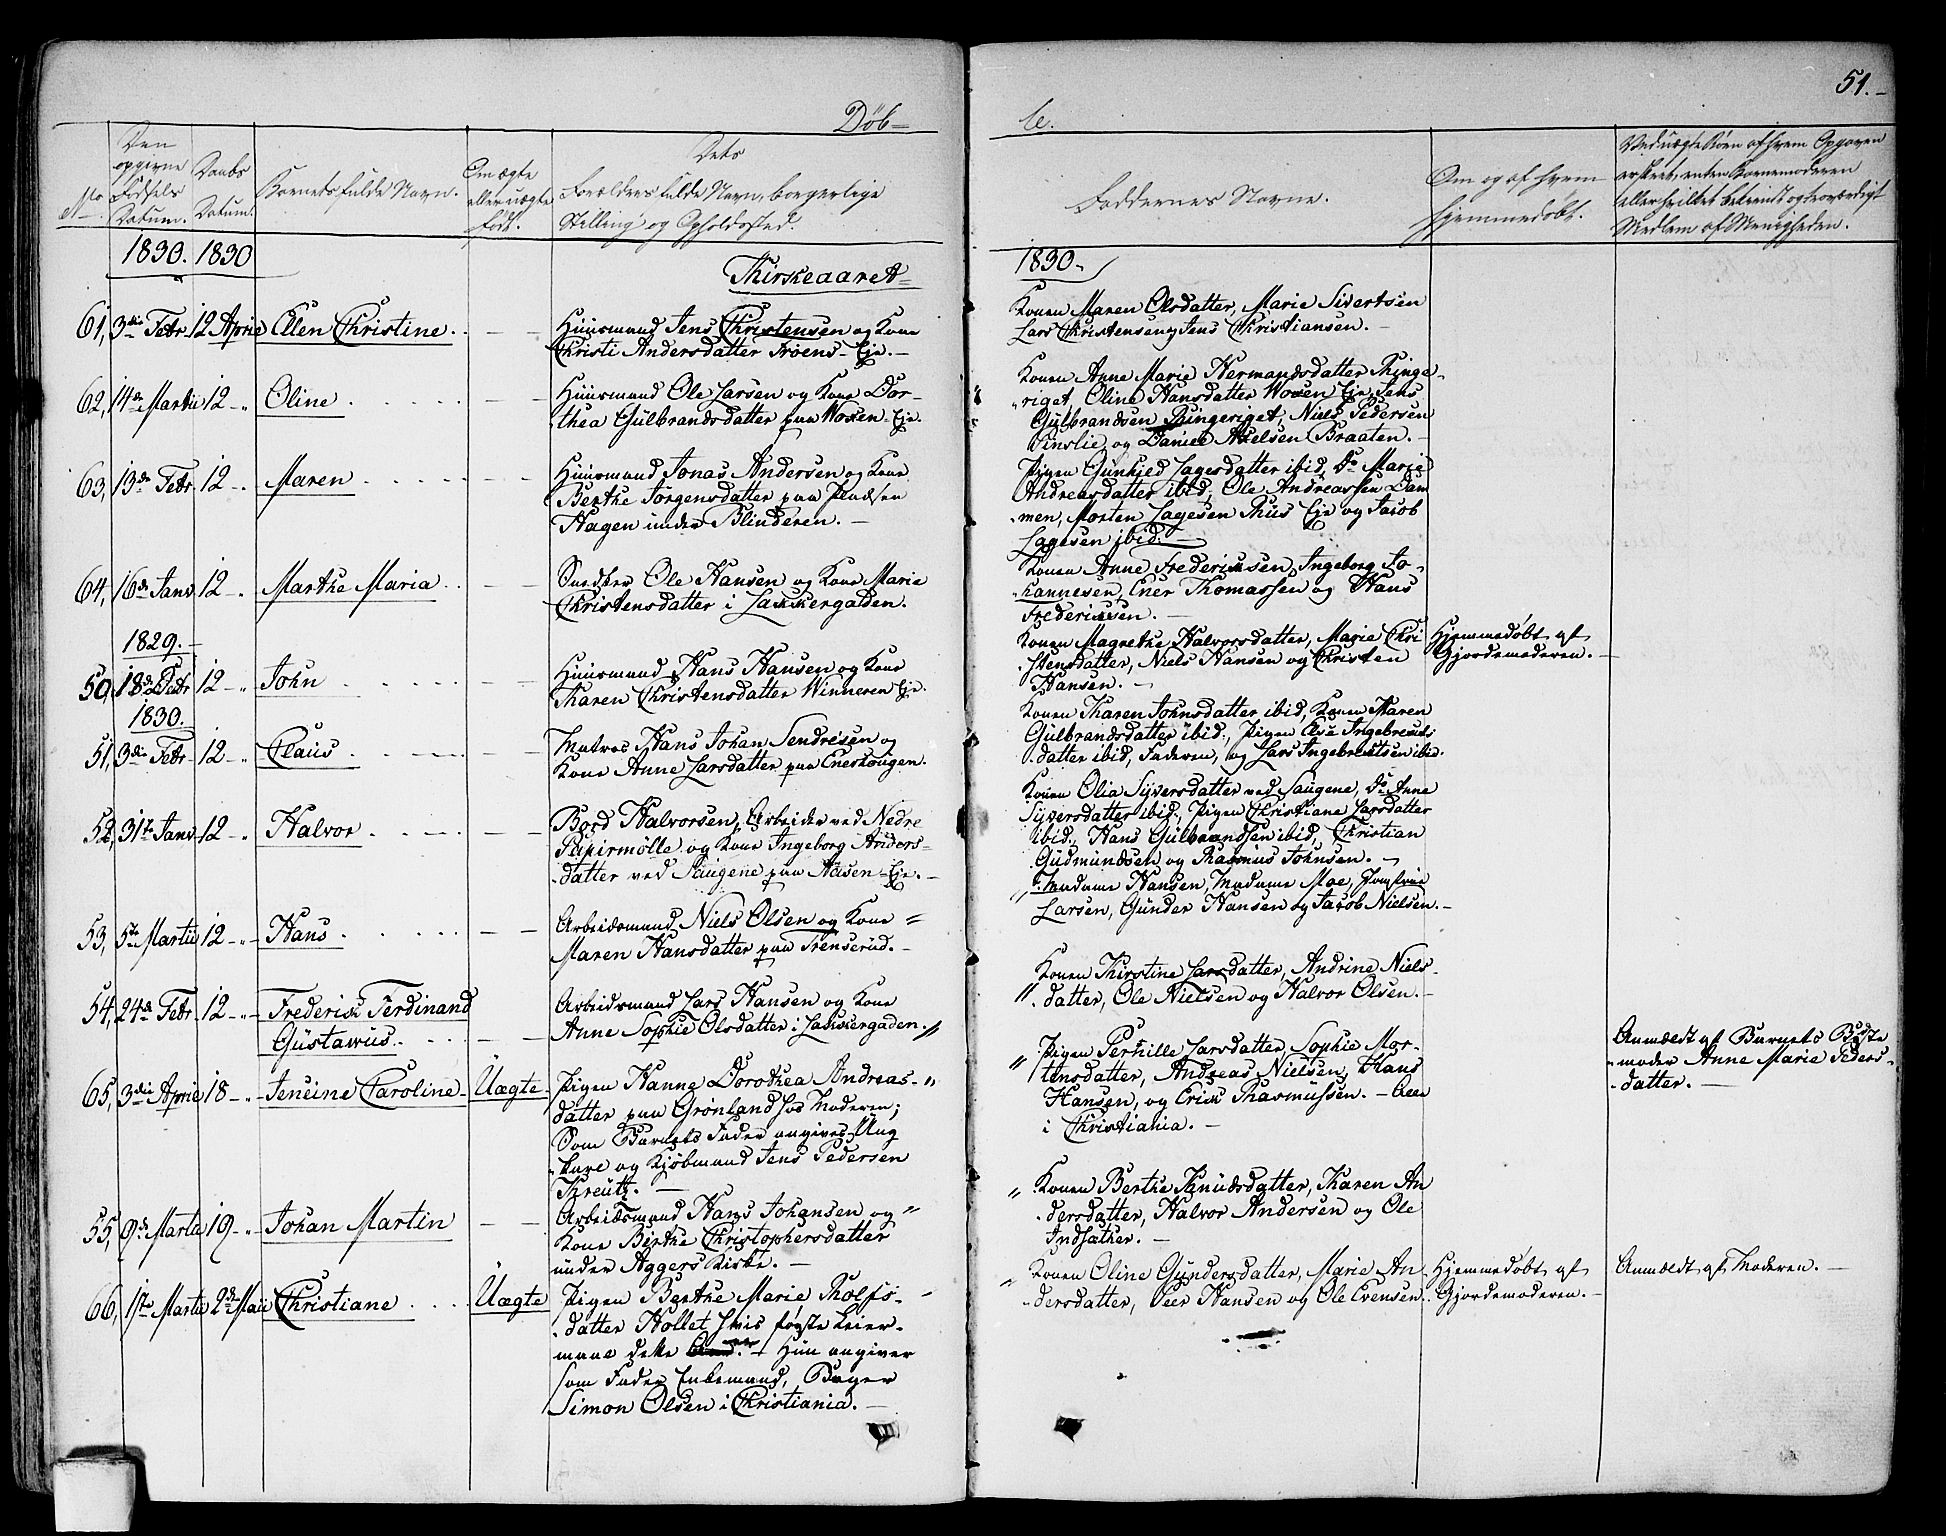 51.
Døb-
te.
No
Den
opgivne
Fødsels
Datum.
Daabs
Datum.
Barnets fulde Navn.
Om ægte
eller uægte
født.
Dets
Forældres fulde Navn, borgerlige
Stilling og Opholdssted.
Faddernes Navne.
Om og af hvem
hjemmedøbt.
Ved uægte Børn af hvem Opgaven
er skeet, enten Barnemoderen
eller hvilket bekiendt og troværdigt
Medlem af Menigheden.
1830. 1830
Kirkeaaret
1830.
61, 3die Febr. 12 April Ellen Christine
Huusmand Jens Christensen og Kone
Christi Andersdatter Frøens-Eje.
Konen Maren Olsdatter, Marie Sivertsen
Lars Christensen og Jens Christiansen.
62, 14de Martii 12 Oline
Huusmand Ole Larsen og Kone Dor-
thea Gulbrandsdatter paa Woxen-Eje.
Konen Anne Marie Hermandsdatter Ringe-
riget, Oline Hansdatter Woxen Eje, Jens
Gulbrandsen Ringeriget, Niels Pedersen
Vinslie, og Daniel Axelsen Braaten.
63, 13de Febr 12 Maren
Huusmand Jonas Andersen og Kone
Berthe Jørgensdatter paa Pladsen
Hagen under Blinderen.
Pigen Gunhied Lagesdatter ibid, Do Marie
Andreasdatter ibid, Ole Andreassen Dam
men, Morten Lagesen Thus Eje og Jacob
Lagesen ibid.
64, 16de Janv 12 Marthe Maria
Snedker Ole Hansen og Kone Marie
Christensdatter i Lakkergaden.
Konen Anne Fredericksen, Ingeborg Jo-
hannesen, Ener Thomassen og Hans
Fredericksen.
1829.
50, 18de Debr 12 John
Huusmand Hans Hansen og Kone
Karen Christensdatter Winneren Eje.
Konen Magrethe Halvorsdatter, Marie Chri
stensdatter, Niels Hansen og Christen
Hansen.
Hjemmedøbt af
Gjordemoderen.
1830.
51, 3die Febr 12 Claus
Matros Hans Johan Sendresen og
Kone Anne Larsdatter paa Eneshougen.
Konen Karen Johnsdatter ibid, Konen Maren
Gulbrandsdatter ibid, Pigen Ase Ingebreths-
datter ibid, Faderen, og Lars Ingebrethsen ibid.
52, 31te Janv 12 Halvor
Bord Halvorsen, Arbeider ved Nedre
Papirmølle og Kone Ingeborg Anders-
datter ved Saugene paa Aasen-Eje.
Konen Olia Syversdatter ved Saugene, Do Anne
Syversdatter ibid, Pigen Christiane Larsdatter
ibid, Hans Gulbrandsen ibid, Christian
Gudmundsen og Rasmus Johnsen.
53, 5te Martii 12 Hans
Arbeidsmand Niels Olsen og Kone
Maren Hansdatter paa Grenserud.
Madame Hansen, Madame Moe, Jomfrue
Larsen, Gunder Hansen og Jacob Nielsen.
54, 24de Febr 12 Frederik Ferdinand
Gustavus
Arbeidsmand Lars Hansen og Kone
Anne Sophie Olsdatter i Lakkergaden.
Konen Kirstine Larsdatter, Andrine Niels-
datter, Ole Nielsen og Halvor Olsen.
65, 3die April 18 Jeneine Caroline Uægte
Pigen Hanne Dorothea Andreas-
datter paa Grønland hos Moderen;
Som Barnets Fader angives Ung
karl og Kjøbmand Jens Pedersen
Kreutz.
Pigen Pernille Larsdatter, Sophie Mor-
tensdatter, Andreas Nielsen, Hans
Hansen, og Erik Rasmussen. - Alle
i Christiania.
Anmeldt af Barnets Beste
moder Anne Marie Peders-
datter.
55, 9de Martii 19 Johan Martin
Arbeidsmand Hans Johansen og
Kone Birthe Christophersdatter
under Aggers Kirke.
Konen Berthe Knudsdatter, Karen An
dersdatter, Halvor Andersen og Ole
Indsether.
66, 1te Martii 2de Maii Christiane Uægte
Pigen Berthe Marie Rolfs-
datter Hollet hvis første Leier-
maal dette. Hun angiver
som Fader Enkemand, Bager
Simon Olsen i Christiania.
Konen Oline Gundersdatter, Marie An
dersdatter, Peer Hansen og Ole Evensen.
Hjemmedøbt af
Gjordemoderen.
Anmeldt af Moderen.